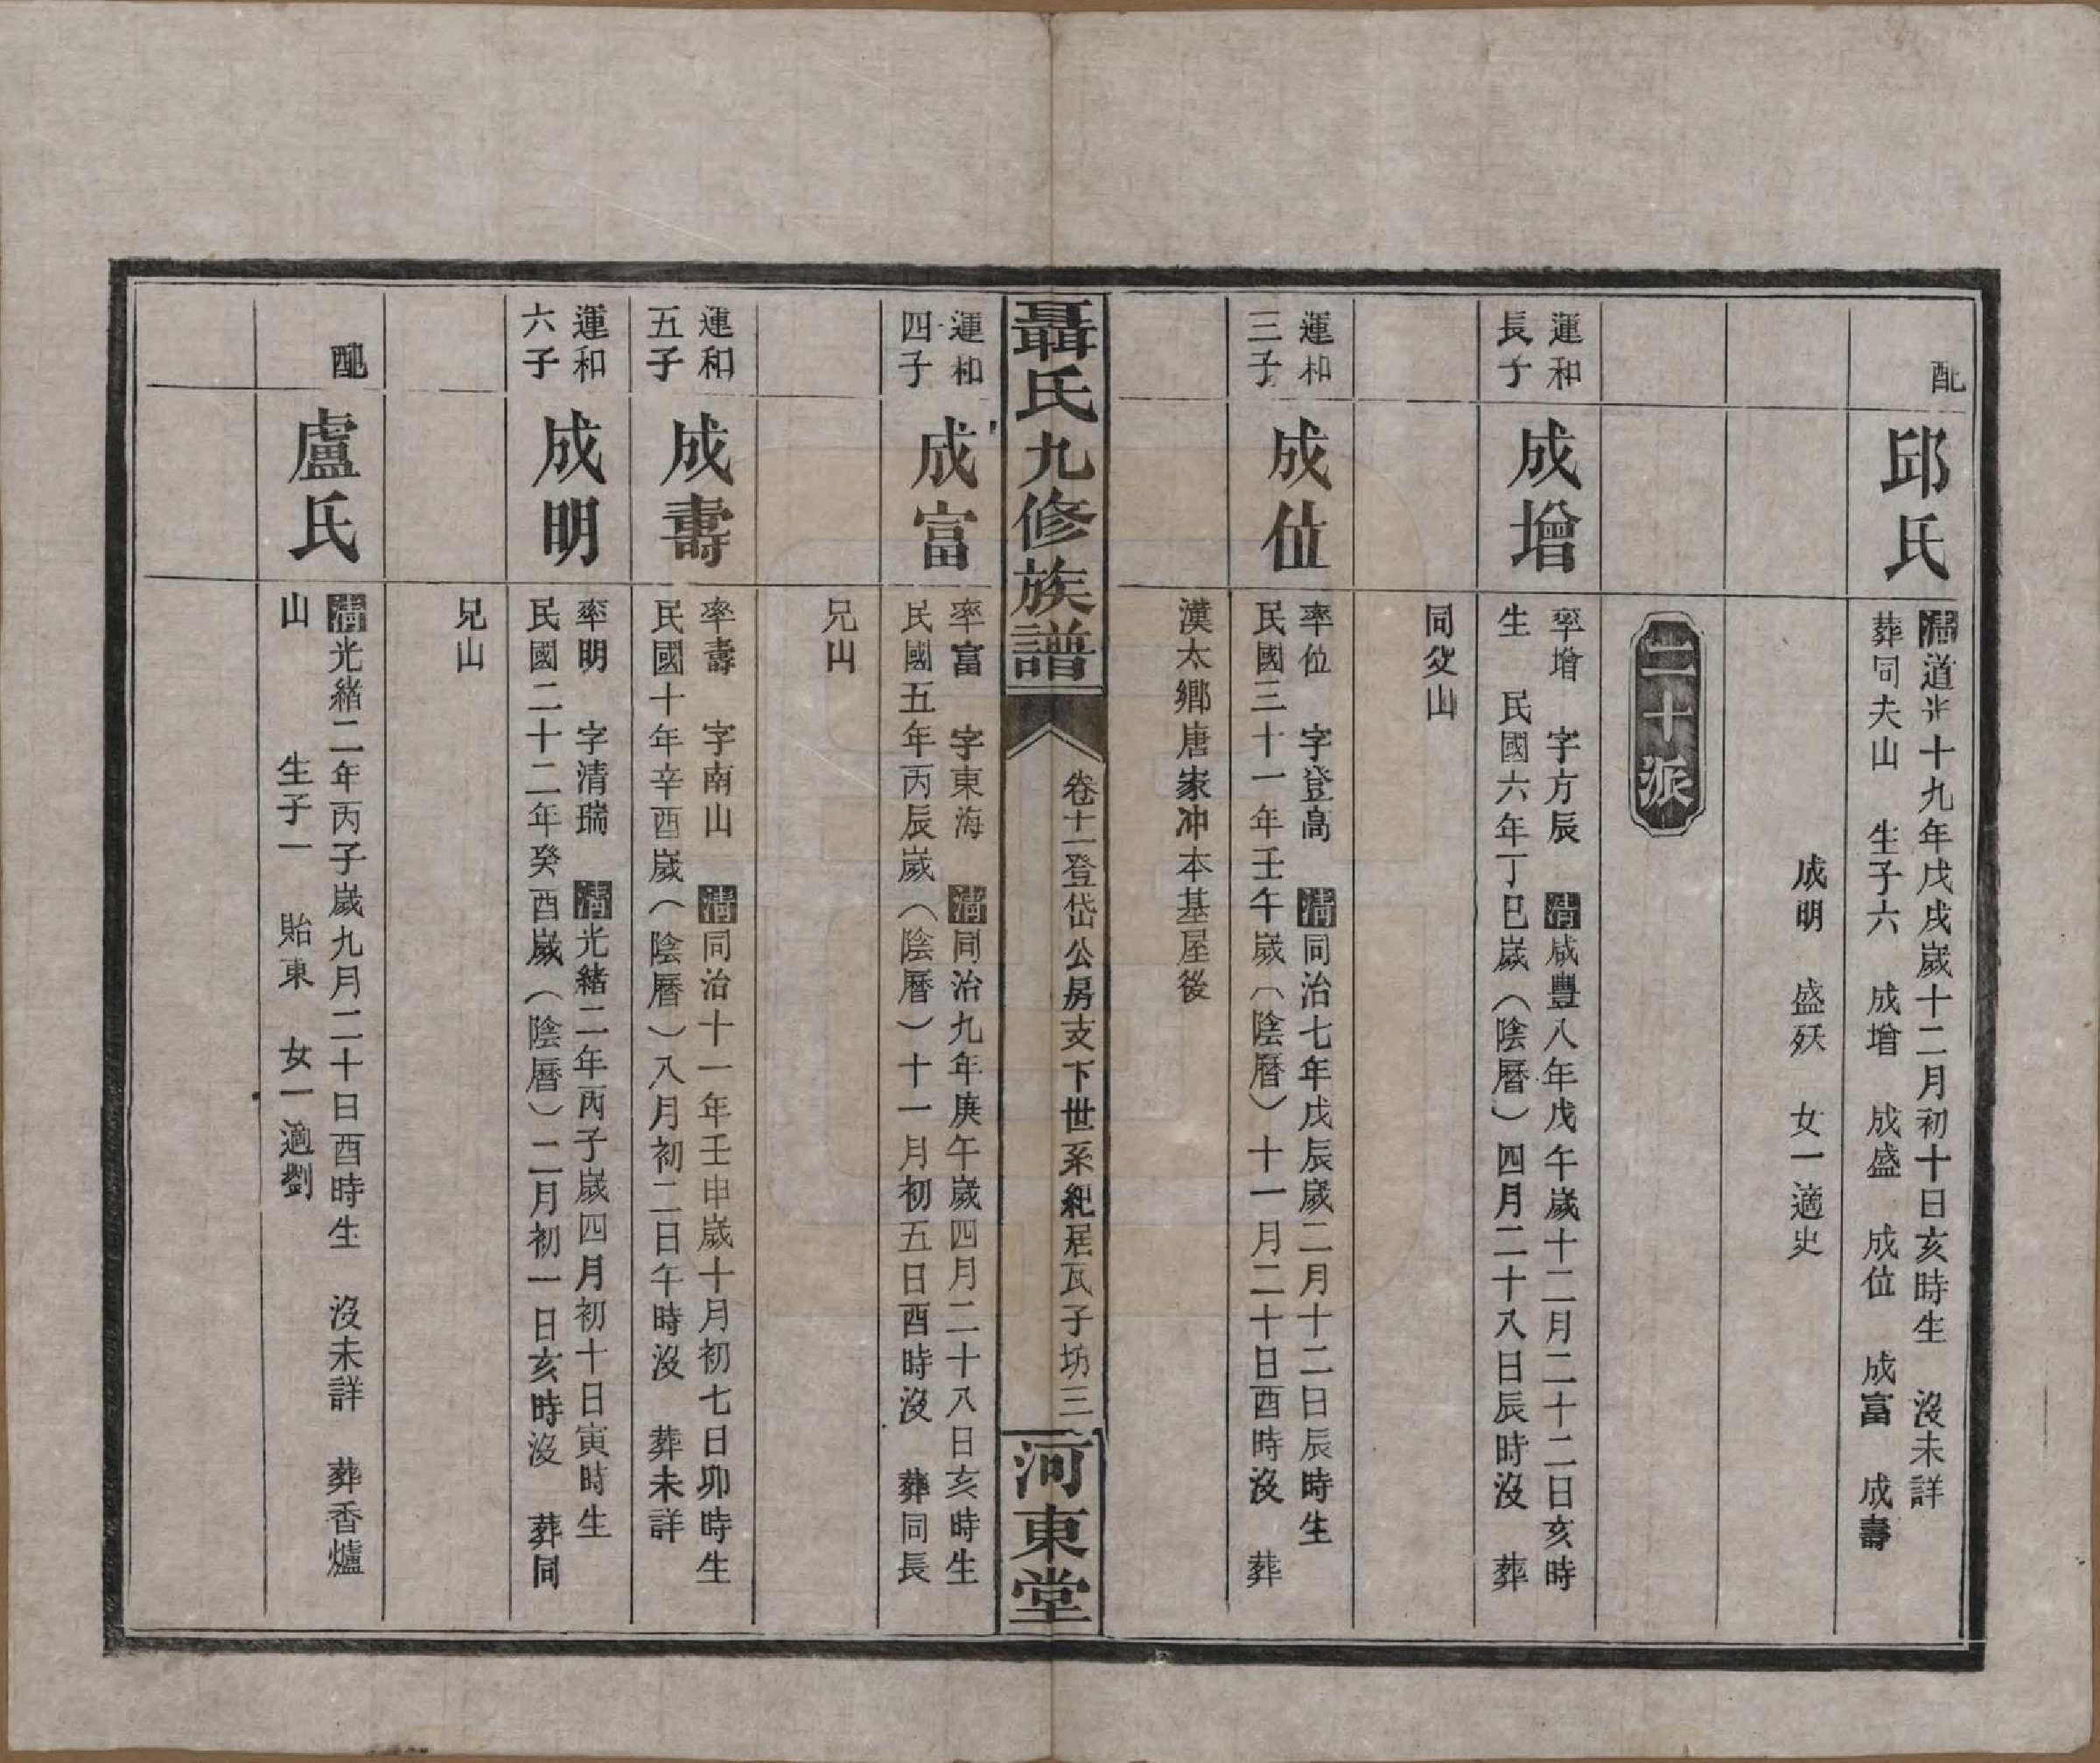 配
邱氏
清道光十九年戊戌嵗十二月初十日亥時生　沒未詳
葬同夫山　生子六　成增　成盛　成位　成富　成壽
成明　盛殀　女一適史
二十派
運和
長子
成增
率增　字方辰　清咸豐八年戊午嵗十二月二十二日亥時
生　民國六年丁巳嵗（陰曆）四月二十八日辰時沒　葬
同父山
運和
三子
成位
率位　字登高　清同治七年戊辰嵗二月十二日辰時生
民國三十一年壬午嵗（陰曆）十一月二十日酉時沒　葬
漢太鄉唐家冲本基屋後
聶氏九修族譜
卷十一登岱公房支下世系紀居瓦子坊三
河東堂
運和
四子
成富
率富　字東海　清同治九年庚午嵗四月二十八日亥時生
民國五年丙辰嵗（陰曆）十一月初五日酉時沒　葬同長
兄山
運和
五子
成壽
率壽　字南山　清同治十一年壬申嵗十月初七日卯時生
民國十年辛酉嵗（陰曆）八月初二日午時沒　葬未詳
運和
六子
成明
率明　字清瑞　清光緒二年丙子嵗四月初十日寅時生
民國二十二年癸酉嵗（陰曆）二月初一日亥時沒　葬同
兄山
配
盧氏
清光緒二年丙子嵗九月二十日酉時生　沒未詳　葬香爐
山　生子一　貽東　女一適劉